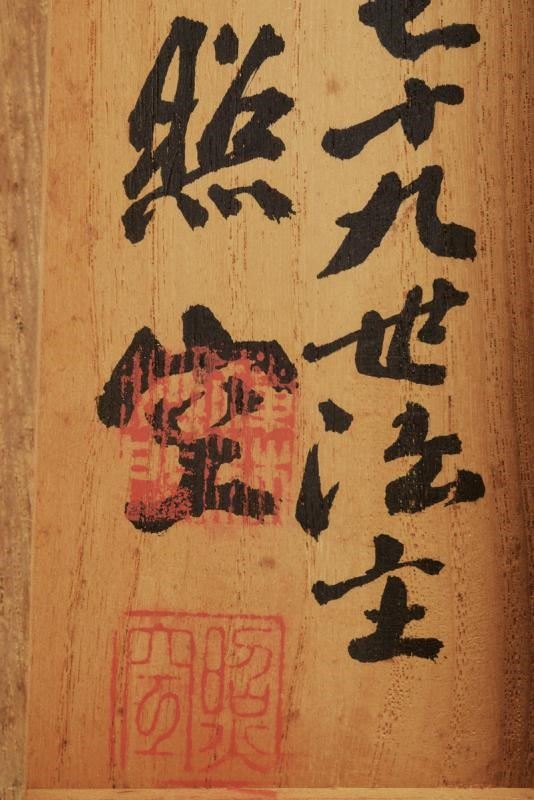 七十九世法主
照空
照空